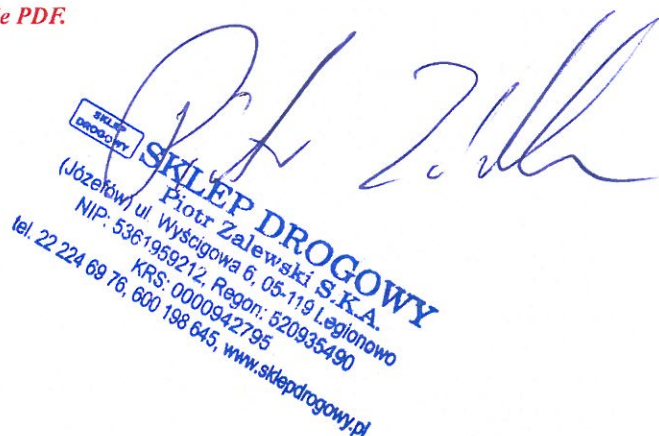 ie PDF.
SKLEP
DROGOWY
SKLEP DROGOWY
Piotr Zalewski S.K.A.
(Józefów) ul. Wyścigowa 6, 05-119 Legionowo
NIP: 5361959212, Regon: 520935490
KRS: 0000942795
tel. 22 224 69 76, 600 198 645, www.sklepdrogowy.pl